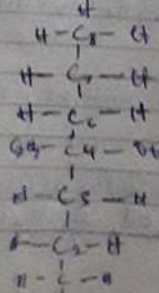 H
H-C8-H
H-C7-H
H-C6-H
-C4-
H-C5-H
H-C2-H
H-C-H